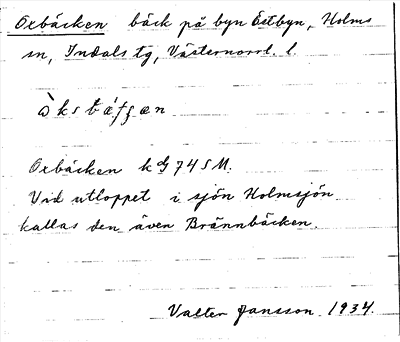 Oxbäcken bäck på byn Östbyn, Holms
sn, Indals tg, Västernorrl. l.
Oxbäcken k G 74 S M.
Vid utloppet i sjön Holmsjön
kallas den även Brännbäcken.
Valter Jansson 1934.